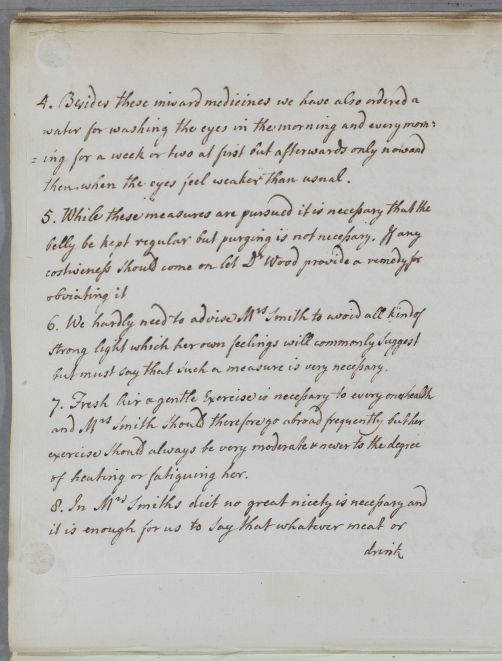 4. Besides these inward medicines we have also ordered a
water for washing the eyes in the morning and every morn=
=ing for a week or two at first but afterwards only now and
then when the eyes feel weaker than usual.
5. While these measures are pursued it is necessary that the
belly be kept regular but purging is not necessary. If any
costiveness should come on let Dr Wood provide a remedy for
obviating it
6. We hardly need to advise Mrs Smith to avoid all kind of
strong light which her own feelings will commonly suggest
but must say that such a measure is very necessary.
7. Fresh Air & gentle Exercise is necessary to every ones health
and Mrs Smith should therefore go abroad frequently but her
exercise should always be very moderate & never to the degree
of heating or fatiguing her.
8. In Mrs Smiths diet no great nicety is necessary and
it is enough for us to say that whatever meat or
drink